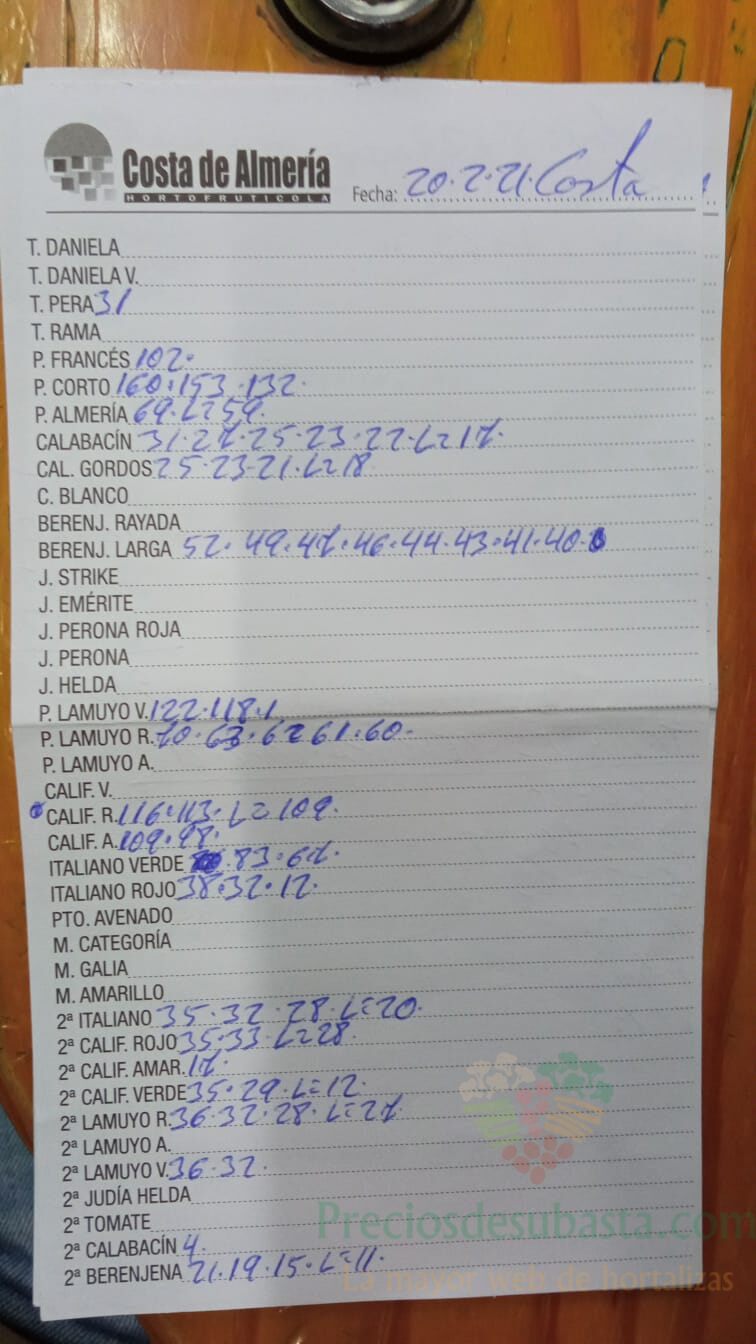 Costa de Almería
HORTOFRUTICOLA
Fecha: 20.2.21. Costa
T. DANIELA
T. DANIELA V.
T. PERA 31
T. RAMA
P. FRANCÉS 102.
P. CORTO 160.153.132.
P. ALMERÍA 69.L=59.
CALABACÍN 31.27.25.23.22.L=17.
CAL. GORDOS 25.23.21.L=18
C. BLANCO
BERENJ. RAYADA
BERENJ. LARGA 52.49.47.46.44.43.41.40.
J. STRIKE
J. EMÉRITE
J. PERONA ROJA
J. PERONA
J. HELDA
P. LAMUYO V. 122.118.
P. LAMUYO R. 70.63.62.61.60.
P. LAMUYO A.
CALIF. V.
CALIF. R. 116.113.L=109.
CALIF. A. 109.98.
ITALIANO VERDE 83.67.
ITALIANO ROJO 38.32.12.
PTO. AVENADO
M. CATEGORÍA
M. GALIA
M. AMARILLO
2ª ITALIANO 35.32.28.L=20.
2ª CALIF. ROJO 35.33.L=28.
2ª CALIF. AMAR. 17.
2ª CALIF. VERDE 35.29.L=12.
2ª LAMUYO R. 36.32.28.L=27.
2ª LAMUYO A.
2ª LAMUYO V. 36.32.
2ª JUDÍA HELDA
2ª TOMATE
2ª CALABACÍN 4.
2ª BERENJENA 21.19.15.L=11.
Preciosdesubasta.com
La mayor web de hortalizas